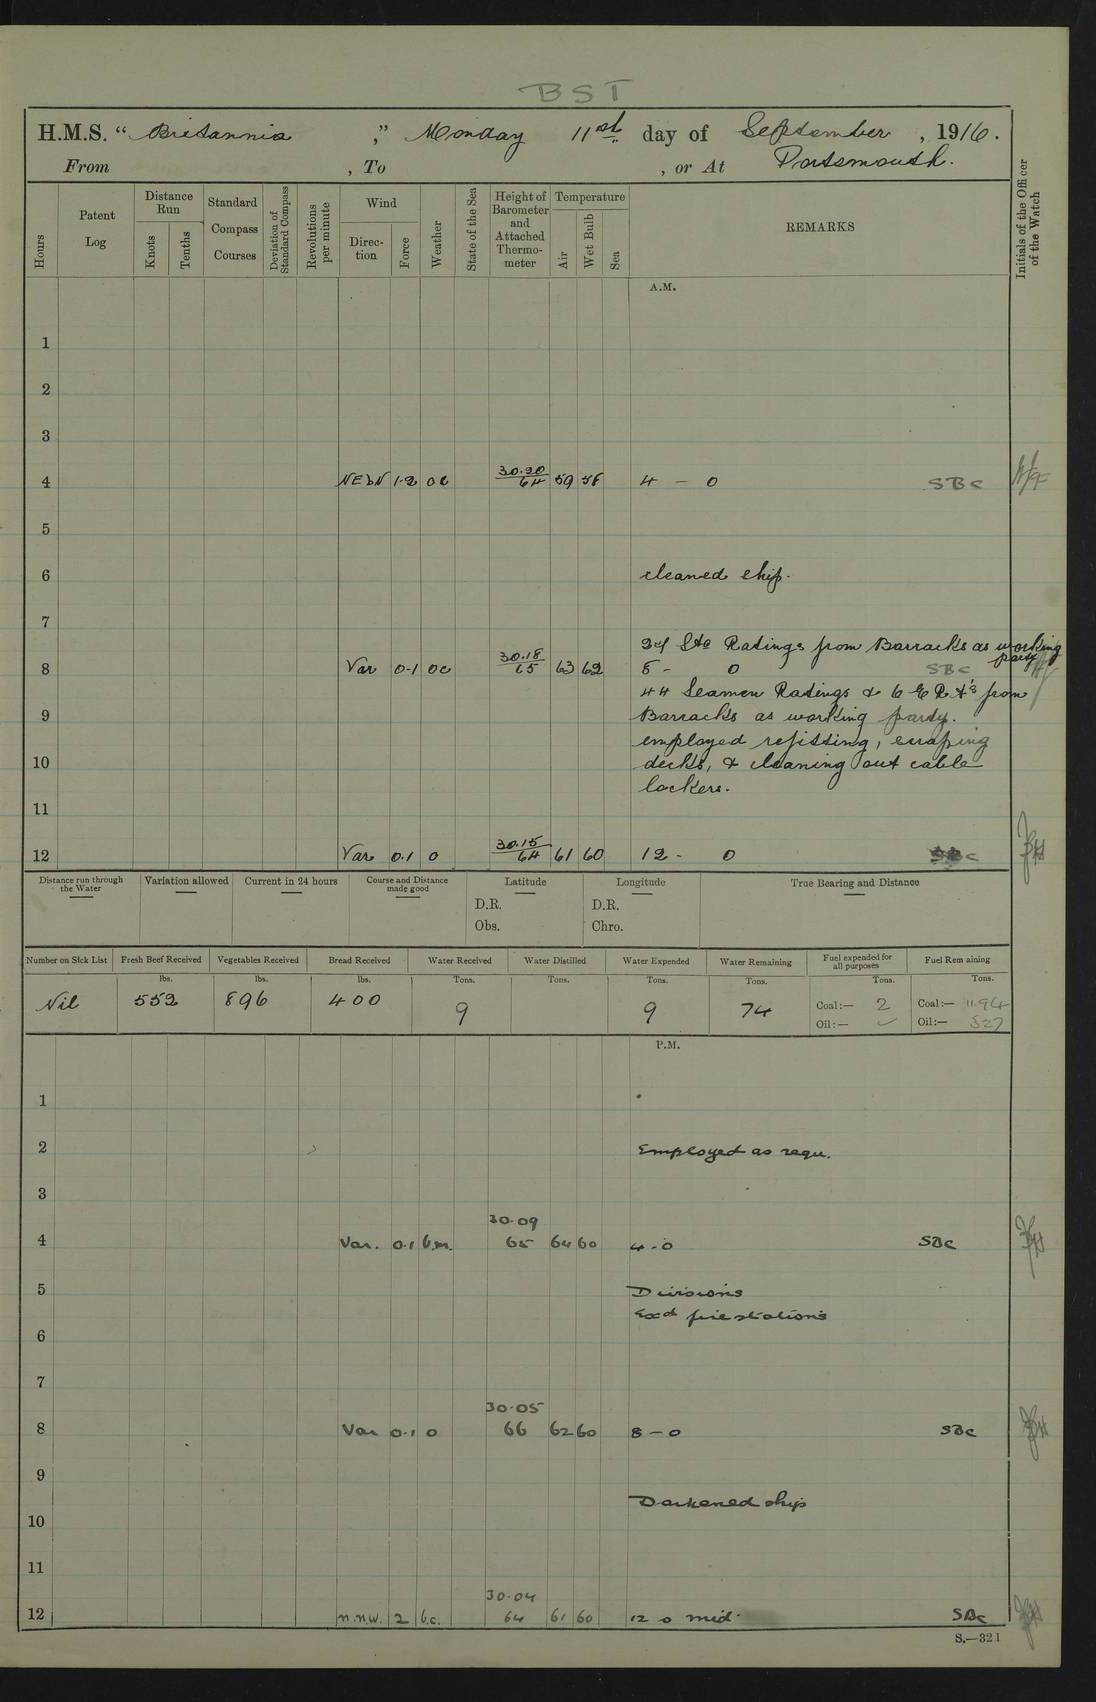 BST
H.M.S. “ Britannia ” Monday 11st day of September, 1916.
From , To , or At Portsmouth.
Hours
Patent Log
Distance Run
Knots
Tenths
Standard Compass Courses
Deviation of Standard Compass
Revolutions per minute
Wind
Direction
Force
Weather
State of the Sea
Height of Barometer and Attached Thermometer
Temperature
Air
Wet Bulb
Sea
REMARKS
Initials of the Officer of the Watch
A.M.
1
2
3
4 NEbN 1-2 oc 30.20 64 59 58 4 - 0 SBC
5
6 cleaned ship.
7
Ratings from Barracks as working party
8 Var 0-1 oc 30.18 65 63 62 8 - 0 SBC
44 Seamen Ratings & 6 E R A's from
9 Barracks as working party.
employed refitting, scraping
10 decks, & cleaning out cable
lockers.
11
12 Var 0.1 o 30.15 64 61 60 12 - 0 SBC
Distance run through the Water
Variation allowed
Current in 24 hours
Course and Distance made good
Latitude
D.R.
Obs.
Longitude
D.R.
Chro.
True Bearing and Distance
Number on Sick List Fresh Beef Received Vegetables Received Bread Received Water Received Water Distilled Water Expended Water Remaining Fuel expended for all purposes Fuel Remaining
lbs. lbs. lbs. Tons. Tons. Tons. Tons. Tons. Tons.
Nil 552 896 400 9 9 74 Coal:— 2 Coal:— 1194
Oil:— Oil:— 527
P.M.
1
2 Employed as requ.
3
4 Var. 0.1 b.m. 30.09 65 64 60 4.0 SBC
5 Divisions
Exd fire stations
6
7
8 Var 0.1 o 30.05 66 62 60 8 - 0 SBC
9
Darkened ship
10
11
12 n.n.w. 2 b.c. 30.04 64 61 60 12 0 mid. SBC
S.—321